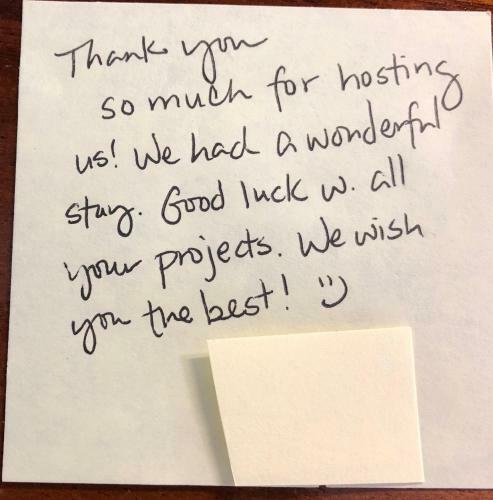 Thank you
so much for hosting
us! We had a wonderful
stay. Good luck w. all
your projects. We wish
you the best! :)